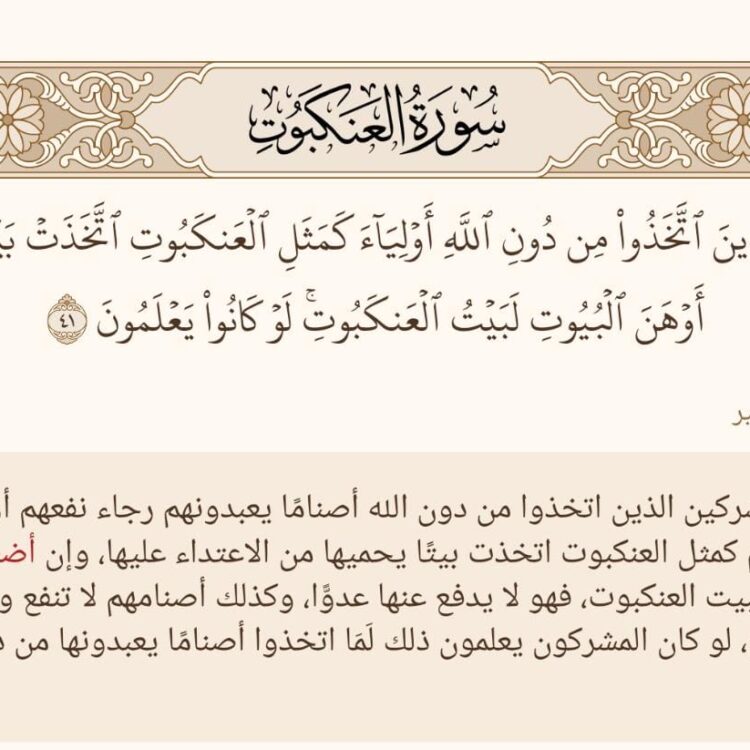 سُورَةُ العَنكَبُوتِ
ٱتَّخَذُواْ مِن دُونِ ٱللَّهِ أَوۡلِيَآءَ كَمَثَلِ ٱلۡعَنكَبُوتِ ٱتَّخَذَتۡ
أَوۡهَنَ ٱلۡبُيُوتِ لَبَيۡتُ ٱلۡعَنكَبُوتِۚ لَوۡ كَانُواْ يَعۡلَمُونَ ٤١
الذين اتخذوا من دون الله أصنامًا يعبدونهم رجاء نفعهم
كمثل العنكبوت اتخذت بيتًا يحميها من الاعتداء عليها، وإن
العنكبوت، فهو لا يدفع عنها عدوًّا، وكذلك أصنامهم لا تنفع
، لو كان المشركون يعلمون ذلك لَمَا اتخذوا أصنامًا يعبدونها من